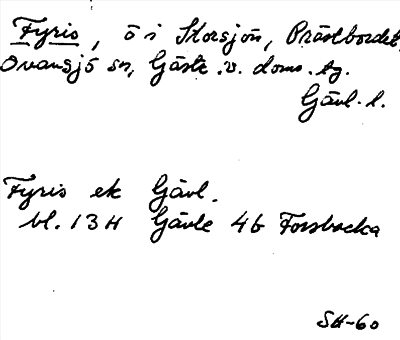 Fyris, ö i Storsjön, Prästbordet,
Ovansjö sn, Gästr. v. doms. tg.
Gävl. l.
Fyris ek Gävl.
bl. 13H Gävle 4b Forsbacka
SH-60